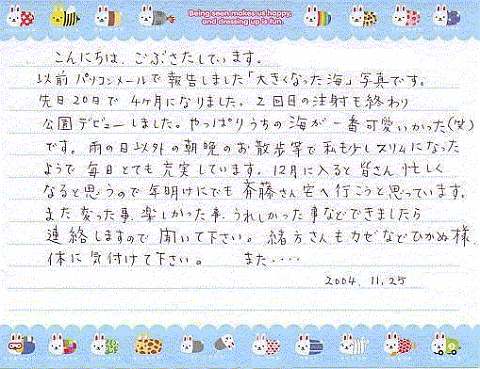 Being seen makes us happy,
and dressing up is fun.
こんにちは、ごぶさたしています。
以前パソコンメールで報告しました「大きくなった海」写真です。
先日20日で4ヶ月になりました。2回目の注射も終わり
公園デビューしました。やっぱりうちの海が一番可愛いかった(笑)
です。雨の日以外の朝晩のお散歩等で私も少しスリムになった
ようで毎日とても充実しています。12月に入ると皆さん忙しく
なると思うので年明けにでも斉藤さん宅へ行こうと思っています。
また変った事、楽しかった事、うれしかった事などできましたら
連絡しますので聞いて下さい。緒方さんもカゼなどひかぬ様、
体に気付けて下さい。 また・・・・
2004.11.25